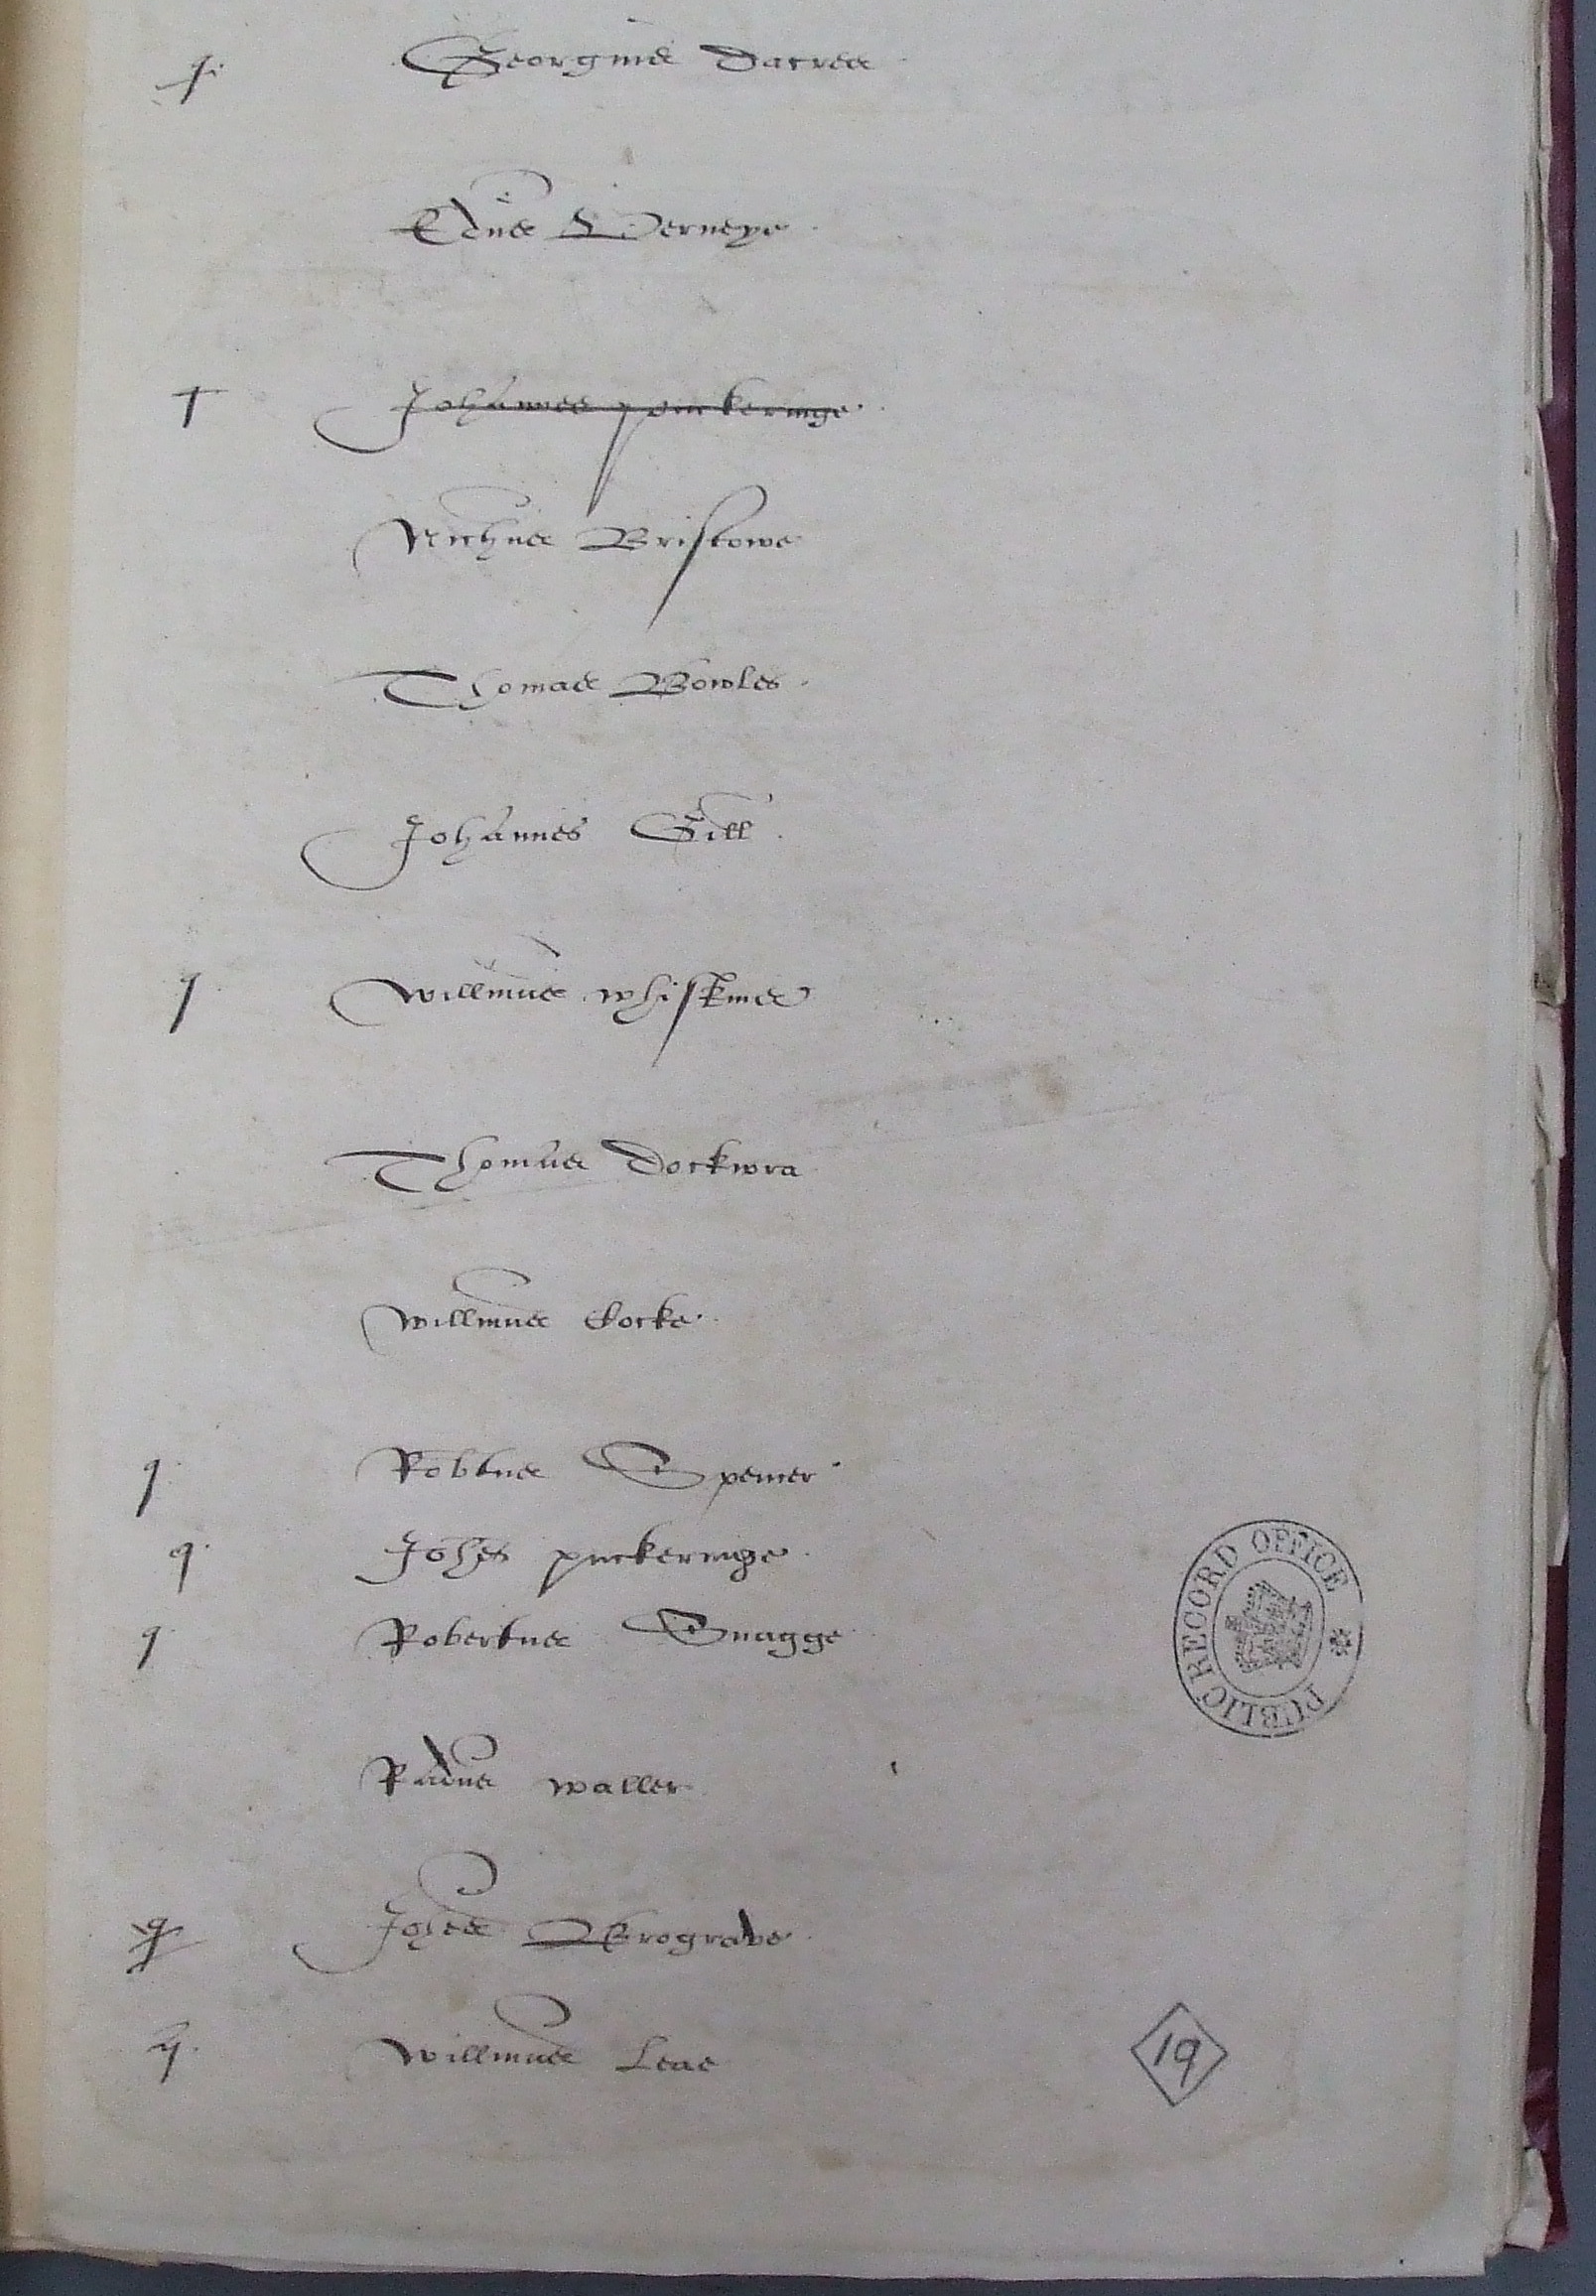 q Georgius Dacres
Edus Verneye
T Johannes puckeringe
Nichus Bristowe
Thomas Bowles
Johannes Gill
q Willmus whiskins
Thomas Dockwra
Willmus Cocke
q Robtus Spencer
q Johes puckeringe
q Robertus Snagge
Radus Waller
q Johes Brograve
q Willmus Leae
PUBLIC RECORD OFFICE
19